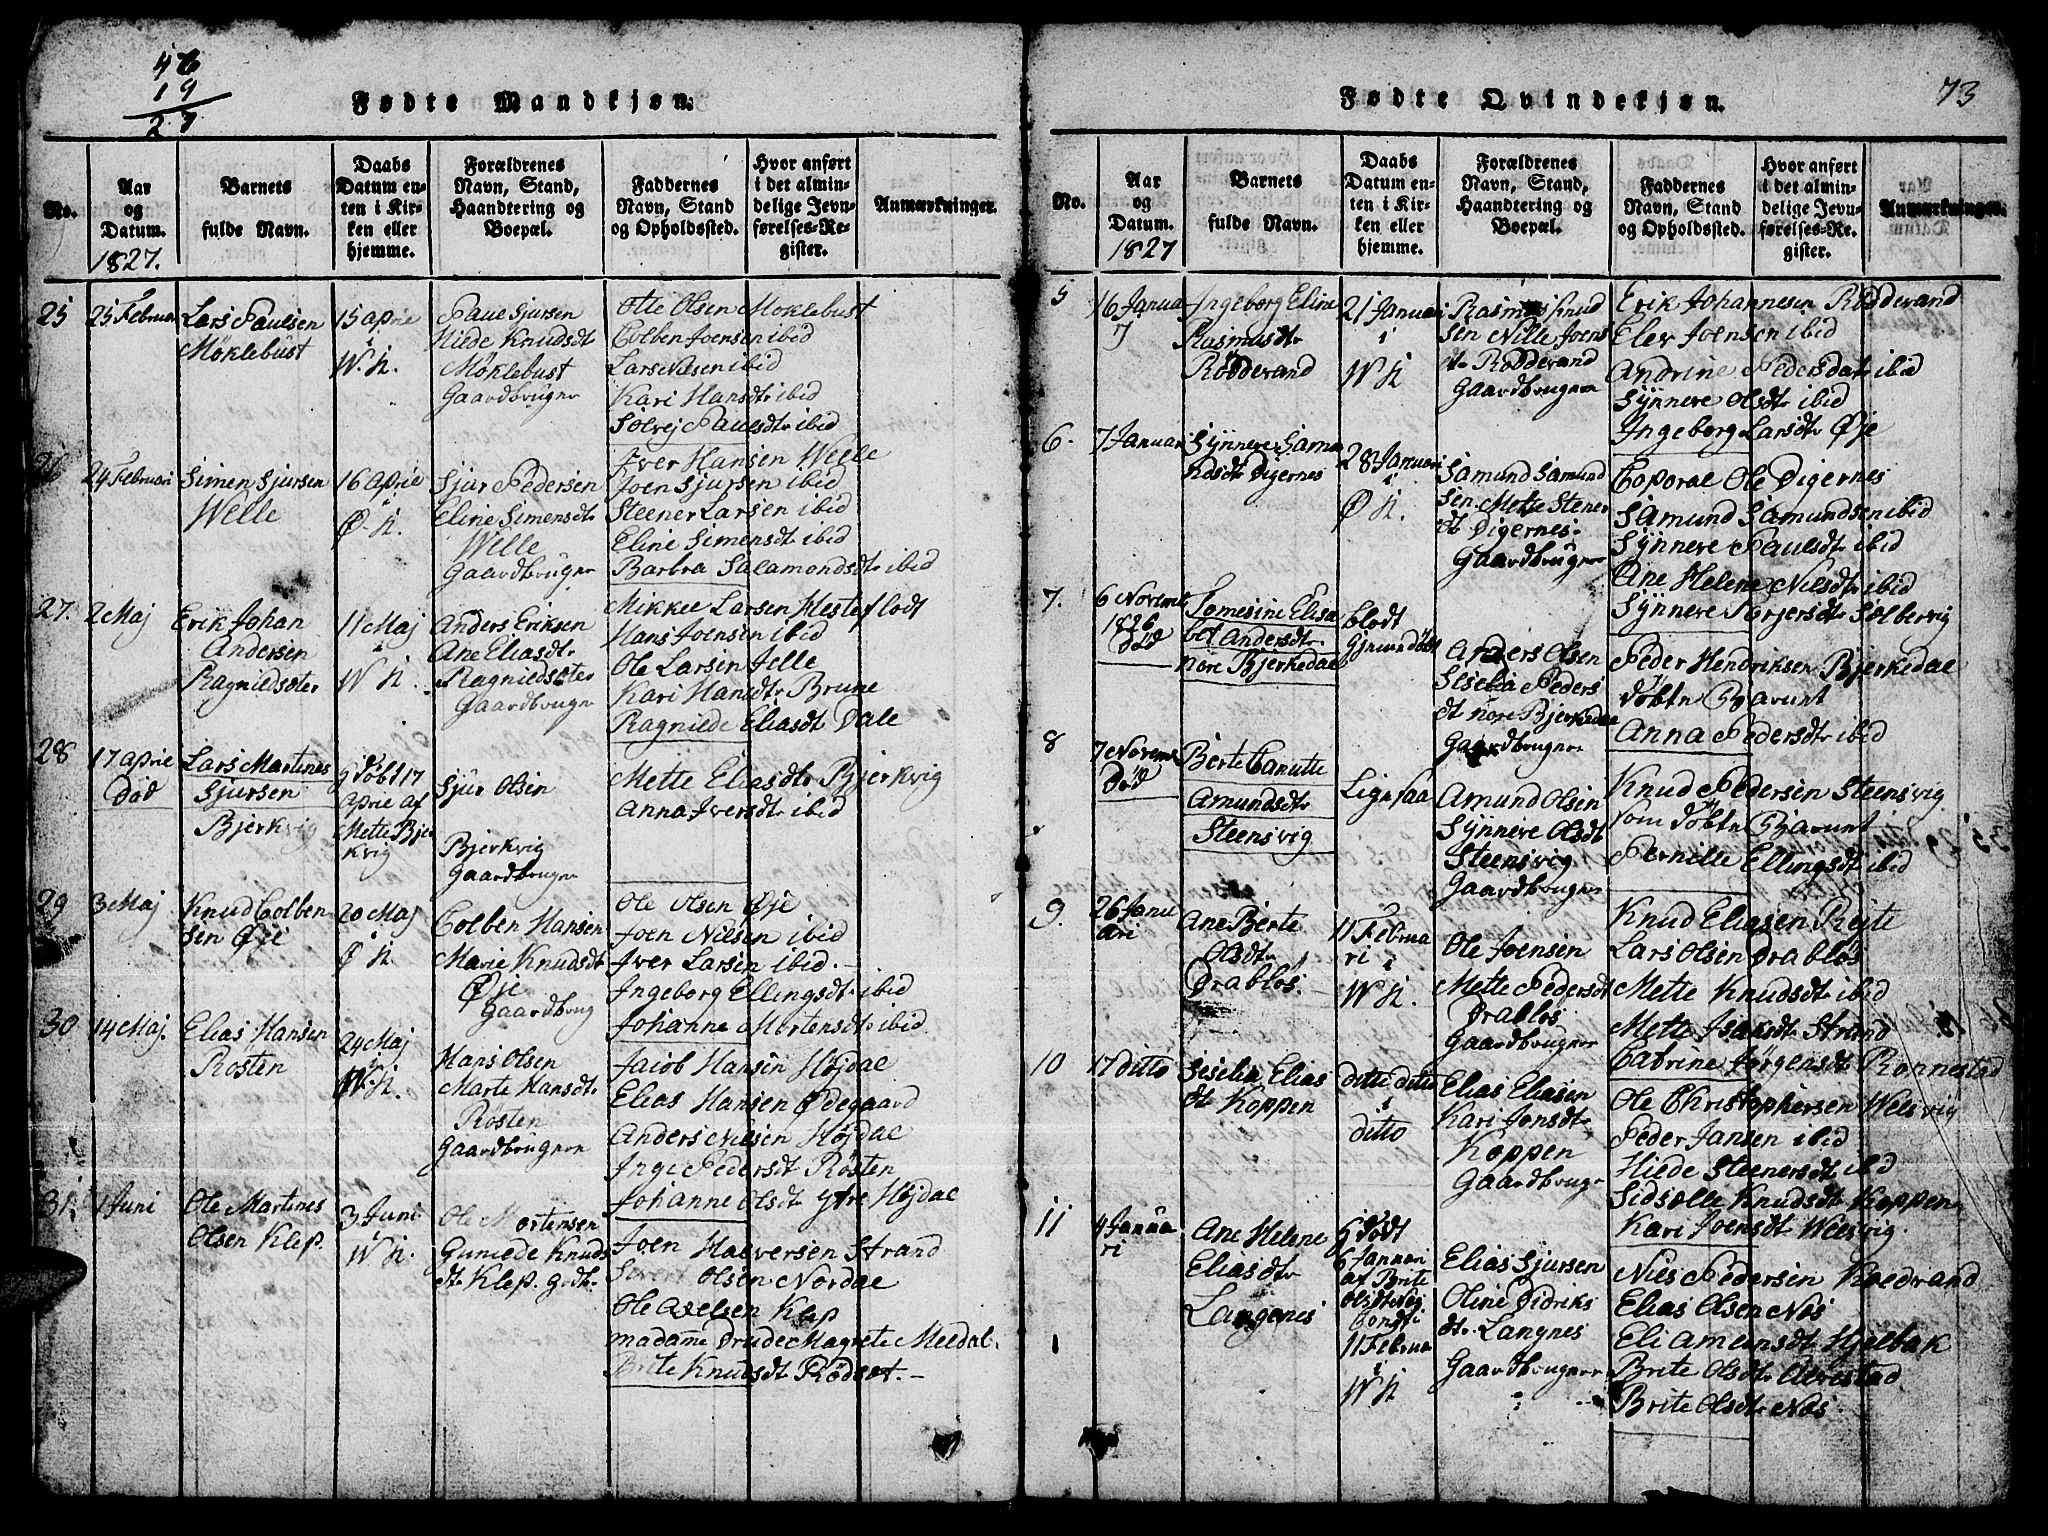 46
19
27
Fødte Mandkjøn.
No.
Aar
og
Datum.
1827.
Barnets
fulde Navn.
Daabs
Datum en-
ten i Kir-
ken eller
hjemme.
Forældrenes
Navn, Stand,
Haandtering og
Boepæl.
Faddernes
Navn, Stand
og Opholdssted.
Hvor anført
i det almin-
delige Jevn-
førelses-Re-
gister.
Anmærkninger.
25
25 Februar
Lars Paulsen
Møklebust
15 april
i
W. K.
Paul Sjursen
Hilde Knudsdt
Møklebust
Gaardbruger
Otte Olsen Moklebust
Colben Joensen ibid
Lars Nilsen ibid
Kari Hansdtr ibid
Solvej Paulsdtr ibid
26
24 Februari
Simen Sjursen
Welle
16 April
i
Ø. K.
Sjur Pedersen
Eline Simensdtr
Welle
Gaardbruger
Iver Hansen Welle
Joen Sjursen ibid
Steener Larsen ibid
Eline Simensdtr ibid
Barbra Salamondsdtr ibid
27.
2 Maj
Erik Johan
Andersen
Ragnildsæter
11 Maj
i
W K.
Anders Eriksen
Ane Eliasdtr
Ragnieldsæter
Gaardbruger
Mikkel Larsen Hesteflodt
Hans Joensen ibid
Ole Larsen Jelle
Kari Hansdtr Brune
Ragnilde Eliasdt Dale
28
17 april
død
Lars Martines
Sjursen
Bjerkvig
Gdøbt 17
April af
Mette Bjer
kvig
Sjur Olsen
Bjerkvig
Gaardbruger
Mette Eliasdtr Bjerkvig
Anna Iversdtr ibid
29
3 Maj
Knud Colben
sen Øje
20 Maj
i
Ø K.
Colben Hansen
Marie Knudsdt
Øje
Gaardbrug
Ole Olsen Øje
Joen Nilsen ibid
Iver Larsen ibid.
Ingeborg Ellingsdtr ibid
Johanne Mortensdtr ibid
30
14 Maj.
Elias Hansen
Rosten
24 Maj
i
W. K.
Hans Olsen
Marte Hansdtr
Røsten
Gaardbruger
Jacob Hansen Højdal
Elias Hansen Ødegaard
Anders Nilsen Højdal
Inge Pedersdt Røsten
Johanne Olsdtr Ytre Højdal
31.
1 Juni
Ole Martines
Olsen Klep.
3 Juni
i
W K.
Ole Mortensen
Gunilde Knuds
dtr Klep. gdb.
Joen Halversen Strand
Olsen Nordal
Ole Axelsen Klep
madame Drude Magrete Meldal.
Brite Knudsdt Rødset.
73
Fødte Qvindekjøn.
No.
Aar
og
Datum.
1827
Barnets
fulde Navn.
Daabs
Datum en-
ten i Kir-
ken eller
hjemme.
Forældrenes
Navn, Stand,
Haandtering og
Boepæl.
Faddernes
Navn, Stand
og Opholdssted.
Hvor anført
i det almin-
delige Jevn-
førelses-Re-
gister.
Anmærkninger.
5
16 Janua
7
Ingeborg Eline
Rasmusdtr
Rødderand
21 Januari
i
W K
Rasmus Knud
sen Nille Joens
dtr Rodderand
Gaardbruger
Erik Johannesen Rodderand
Elev Joensen ibid
Andrine Pedersdatr ibid
Synneve Olsdtr ibid
Ingeborg Larsdtr Øje
6.
7 Januar
Synneve Samu
ndsdt Digernes
28 Januari
i
Ø K.
Samund Samund
sen Mette Stener
dt Digernes.
Gaardbruger
Coporal Ole Digernes
Samund Samundsen ibid
Synneve Paulsdtr ibid
Ane Helene Nilsdtr ibid
Synneve Torgersdtr Solbervig
7.
6 Novemb
1826
død
Tomesine Elisa
bet Andersdtr
nore Bjerkedal
blodt
Gjemmedøbt
Anders Olsen
Siselia Peders
dt nore Bjerkedal
Gaardbruger
Peder Hendriksen Bjerkedal
døbte Barnet
Anna Pedersdtr ibid
8
7 Novemb
Død
Berte Canutte
Amundsdtr
Steensvig
Ligesaa
Amund Olsen
Synneve Olsdt
Steensvig
Gaardbruger
Knud Pedersen Steensvig
som døbte Barnet
Pernille Ellingsdtr ibid
9.
26 Janu
ari
Ane Berte
Olsdtr
Drabløs.
11 Februa
ri i
W K.
Ole Joensen
Mette Pedersdt
Drabløs
Gaardbruger
Knud Eliasen Rejte
Lars Olsen Drabløs
Mette Knudsdtr ibid
Mette Isaksdtr Strand
Catrine Jørgensdtr Ronnestad
10
17 Ditto
Siselia Elias
dt Koppen
ditte ditto
i
ditto
Elias Eliasen
Kari Jonsdtr
Koppen
Gaardbruger
Ole Christophersen Welsvig
Peder Jansen ibid
Hilde Steenersdt ibid
Sidselle Knudsdt Koppen
Kari Joensdt Welsvig
11
4 Janua
ri
Ane Helene
Eliasdtr
Langenes
Gdødt
6 Januari
af Brite
Olsdt Nøj
11 Februa
i
W K
Elias Sjursen
Oline Didriks
dtr Langnes
Gaardbruger
Nils Pedersen Roedvand
Elias Olsen Nøs
Eli Amundsdt Hjelbak
Brite Olsdtr Alvestad
Brite Olsdtr Nøs
1